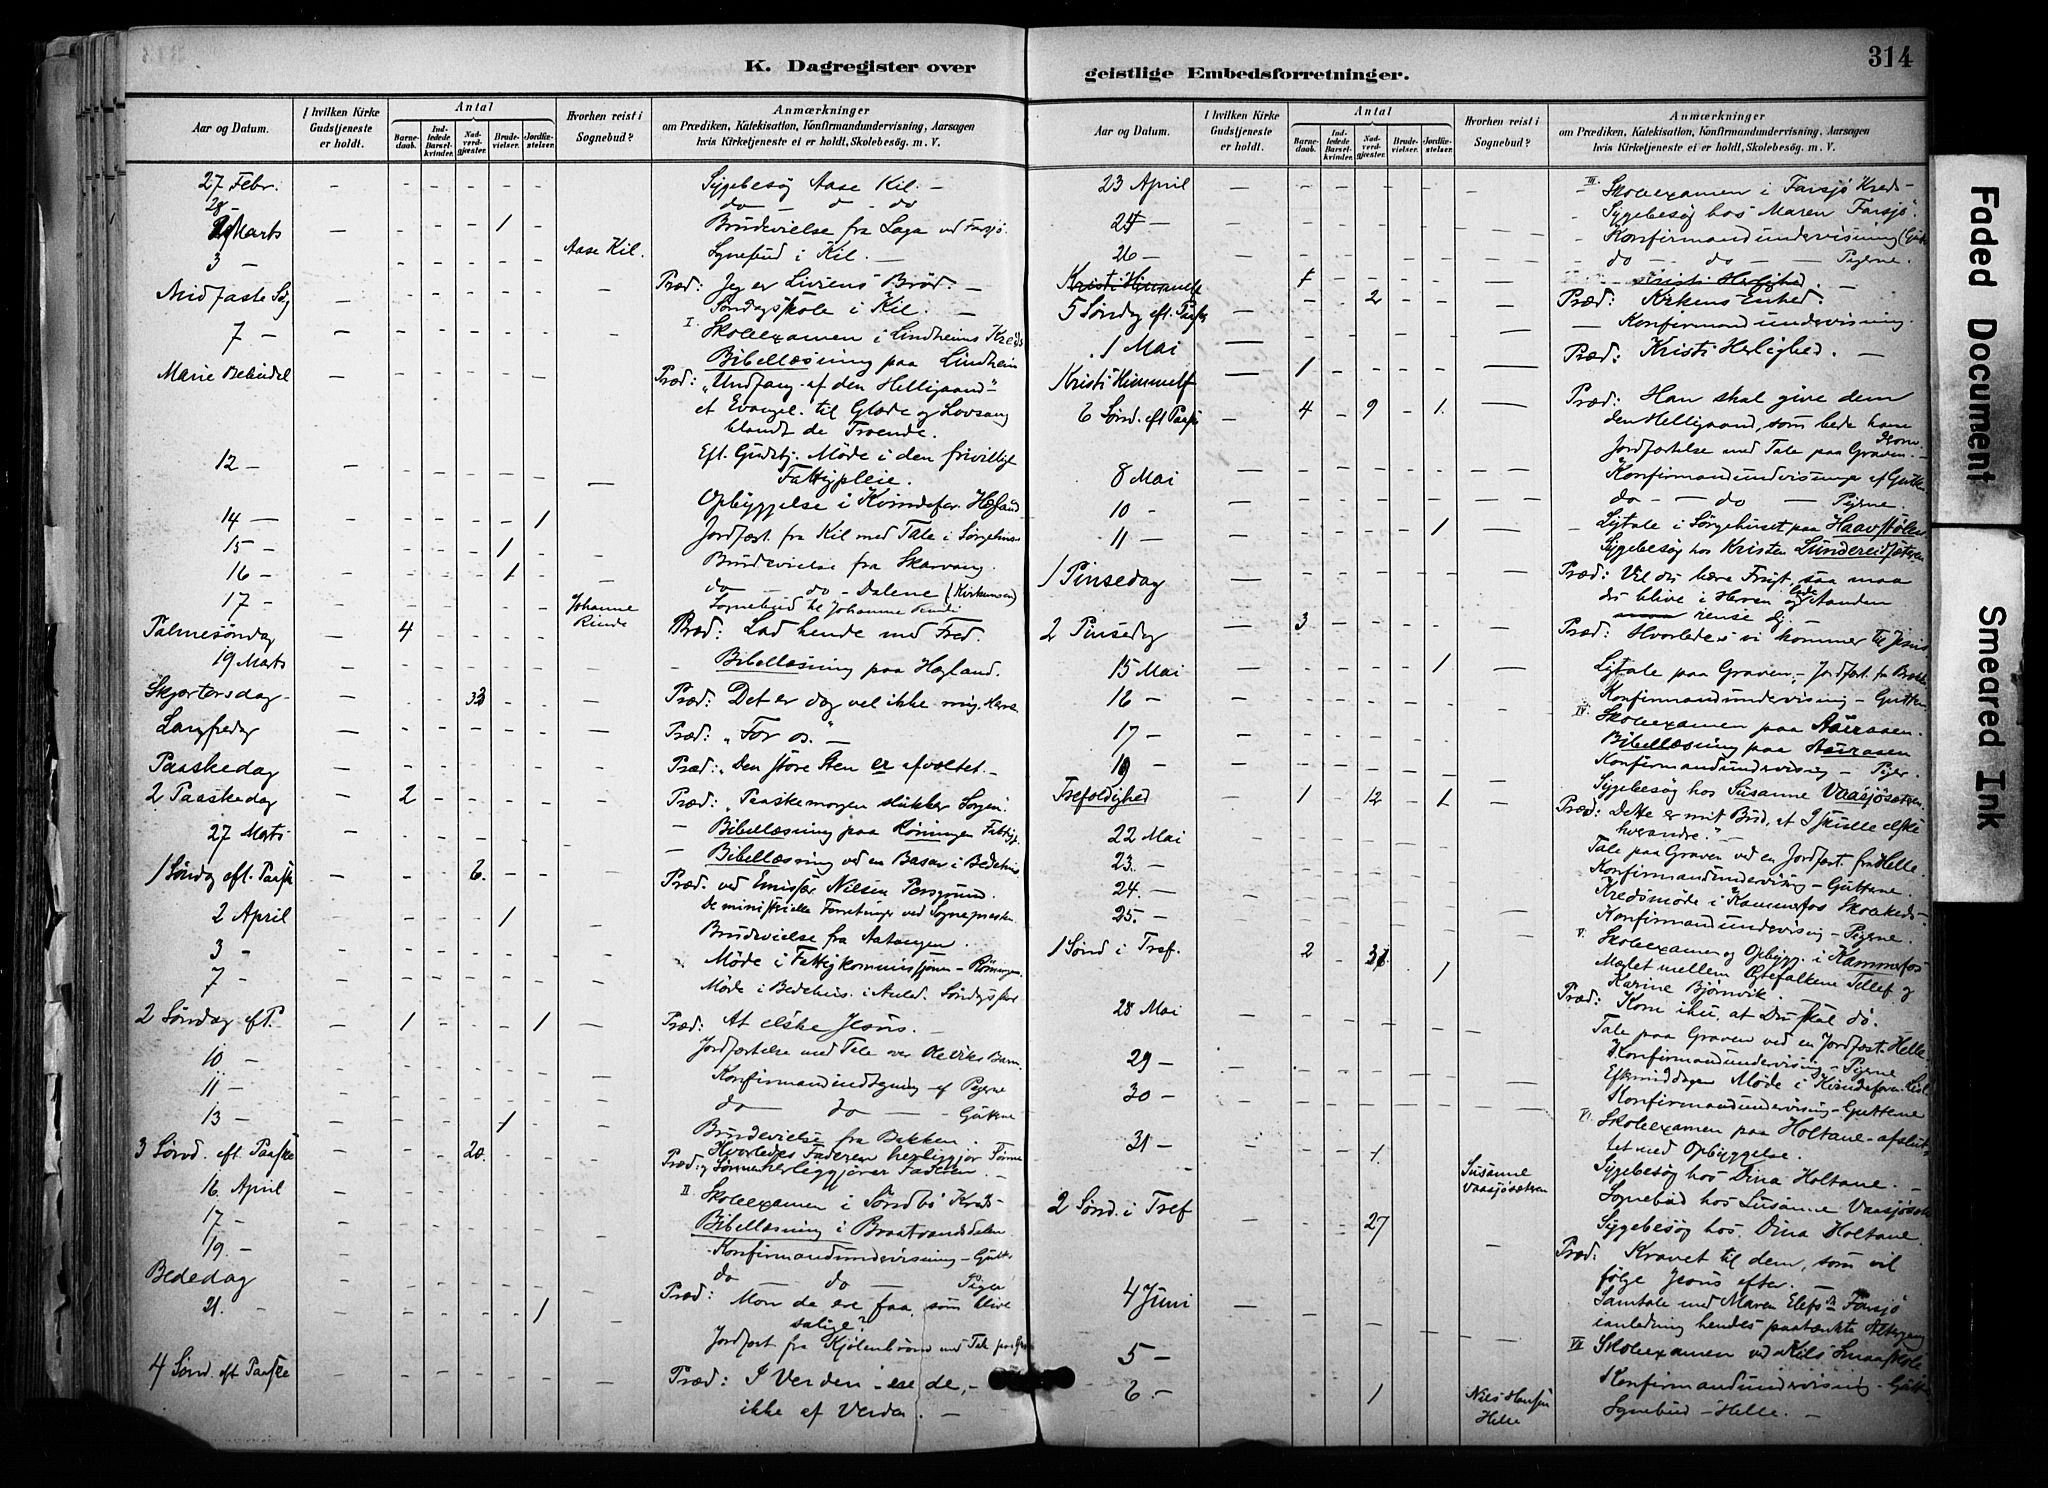 314
K. Dagregister over
geistlige Embedsforretninger.
Aar og Datum.
I hvilken Kirke Gudstjeneste er holdt.
Antal
Barnedaab.
Indledede Barselkvinder.
Nadverdgjæster.
Brudevielser.
Jordfæstelser.
Hvorhen reist i Sognebud?
Anmærkninger
om Prædiken, Katekisation, Konfirmandundervisning, Aarsagen
hvis Kirketjeneste ei er holdt, Skolebesøg. m. V.
27 Febr. Sygebesøg Aase Kil. –
28 – do – d – do
2 Marts 1 Brudevielse fra Laga ved Farsjø.
3 – Aase Kil. Sognebud i Kil. –
Midfaste Søg Præd: Jeg er Livsens Brød. –
Søndagsskole i Kil. –
7 – I Skoleexamen i Lindheims Kreds
Bibellæsning paa Lindheim
Marie Bebudel Præd: „Undfang. af den Helligaand"
et Evangel. til Glæde og Lovsang
blandt de Troende.
12 – Eft. Gudstj. Møde i den frivillige
Fattigpleie.
Opbyggelse i Kvindefor. Hegland
14 – 1 Jordfæst. fra Kil med Tale i Sørgehuset
15 – 1 Brudevielse fra Skarvang.
16 – 1 do – do – Dalene
17 – Johanne Rinde Sognebud til Johanne
Palmesøndag 4 Præd: Lad hende med Fred
19 Marts Bibellæsning paa Hegland.
Skjærtorsdag 32 Præd: Det er dog vel ikke mig, Herre
Langfredag Præd: „For os." –
Paaskedag Præd: „Den store Sten er afvæltet. –
2 Paaskedag 2 Præd: „Paaskemorgen slukker Sorgen.
27 Marts – Bibellæsning paa Rönningen Fattig
– Bibellæsning ved en Basar i Bedehus
1 Søndag eft. Paaske 6. Præd. ved Emissær Nilsen Porsgrund.
De ministerielle Forretninger ved Sognepræsten
2 April 1 Brudevielse fra Aatangen.
3 – Møde i Fattigkommissionen –
7 – Møde i Bedehus. i Anled. Søndagsskole
2 Søndag eft P. 1 1 Præd: At elske Jesus. –
Jordfæstelse med Tale over Barn
10 – Konfirmandindtegning af Pigerne
11 – do – do – Guttene
13 – 1 Brudevielse fra Bakken.
3 Sønd. eft. Paaske 20. Præd: Hvorledes Faderen herliggjør Sønnen
og Sønnen herliggjører Faderen –
16. April II Skoleexamen i Søndbö Kreds
17 – Bibellæsning i Braatvandsdalen
19. – Konfirmandundervisning – Gutter
Bededag do – do – Piger
21. 1 Præd: Mon de ere faa, som blive
salige?
Jordfæst fra Kjølenbrønd med Tale paa
4 Sønd. eft Paaske Præd: I Verden – ere de, –
ikke af Verden. –
Aar og Datum.
I hvilken Kirke Gudstjeneste er holdt.
Antal
Barnedaab.
Indledede Barselkvinder.
Nadverdgjæster.
Brudevielser.
Jordfæstelser.
Hvorhen reist i Sognebud?
Anmærkninger
om Prædiken, Katekisation, Konfirmandundervisning, Aarsagen
hvis Kirketjeneste ei er holdt, Skolebesøg. m. V.
23 April III Skoleexamen i Farsjø Kreds –
Sygebesøg hos Maren Farsjø.
24 – Konfirmandundervisning (Gutt
26 – do – do – Pigerne.
Kristi Himmelf 1 Kristi Herlighed
5 Søndag eft. Paaske 2 Præd: Kirkens Enhed.
1 Mai – Konfirmandundervisning.
Kristi Himmelf 1 Præd: Kristi Herlighed. –
6 Sønd. eft Paaske 4 9 1. Præd: Han skal give dem
den Helligaand, som bede ham
derom
Jordfæstelse med Tale paa Graven. –
8 Mai Konfirmandundervisning af Gutter
10 – do – do – Pigerne.
11 – 1 Ligtale i Sørgehuset paa Haavstølen
Sygebesøg hos Kristen Lundereid
1 Pinsedag Præd: Vil du bære Frugt, saa maa
du blive i Herren og lade Aanden
rense dig –
2 Pinsedag 3 Præd: Hvorledes vi kommer til Jesus
15 Mai 1 Ligtale paa Graven – Jordfæst. fra Brekke
16 – Konfirmandundervisning – Gutter
17 – IV Skoleexamen paa Aaraasen.
Bibellæsning paa Aaraasen
19 – Konfirmandundervisning – Piger.
Sygebesøg hos Susanne Vaasjøsæteren.
Trefoldighed 1 12 1 Præd: Dette er mit Bud, at I skulle elske
hverandre." –
22 Mai Tale paa Graven ved en Jordfæst. fra Helle
23. – Konfirmandundervisning – Guttene.
24. – Kredsmøde i Kammerfos Skolekreds –
25. – Konfirmandundervisning – Pigerne.
V. Skoleexamen og Opbygg. i Kammerfos
1 Sønd i Tref. 2 31 1 Mæglet mellem Ægtefolkene Tellef og
Karine Bjørnvik.
Præd: Kom ihu, at Du skal dö.
28 Mai Tale paa Graven ved en Jordfæst. Helle
29 – Konfirmandundervisning – Pigerne
Eftermiddagen Møde i Kvindeforen.
30 – Konfirmandundervisning – Guttene
31 – VI. Skoleexamen paa Holtane – afslut-
tet med Opbyggelse.
Sygebesøg hos Dina Holtane. –
1. Susanne Vaasjøsæteren Sognebud hos Susanne Vaasjøsæt
Sygebesøg hos. Dina Holtane.
2 Sønd. i Tref 27 Præd: Kravet til dem, som vil
følge Jesus efter. –
4 Juni Samtale med Maren Elefsdr Farsjø
i anledning hendes paatænkte Altergang
5 – VII Skoleexamen ved Kils Smaaskole
Konfirmandundervisning – Gutter
6. – 1 Niels Hansen Helle Sognebud – Helle. –
Faded Document
Smeared Ink